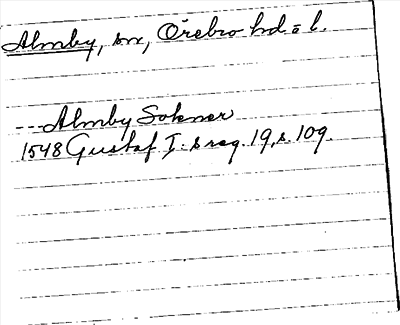 Almby, sn, Örebro hd o l.
---Almby Soknar
1548 Gustaf I:s reg. 19, s. 109.